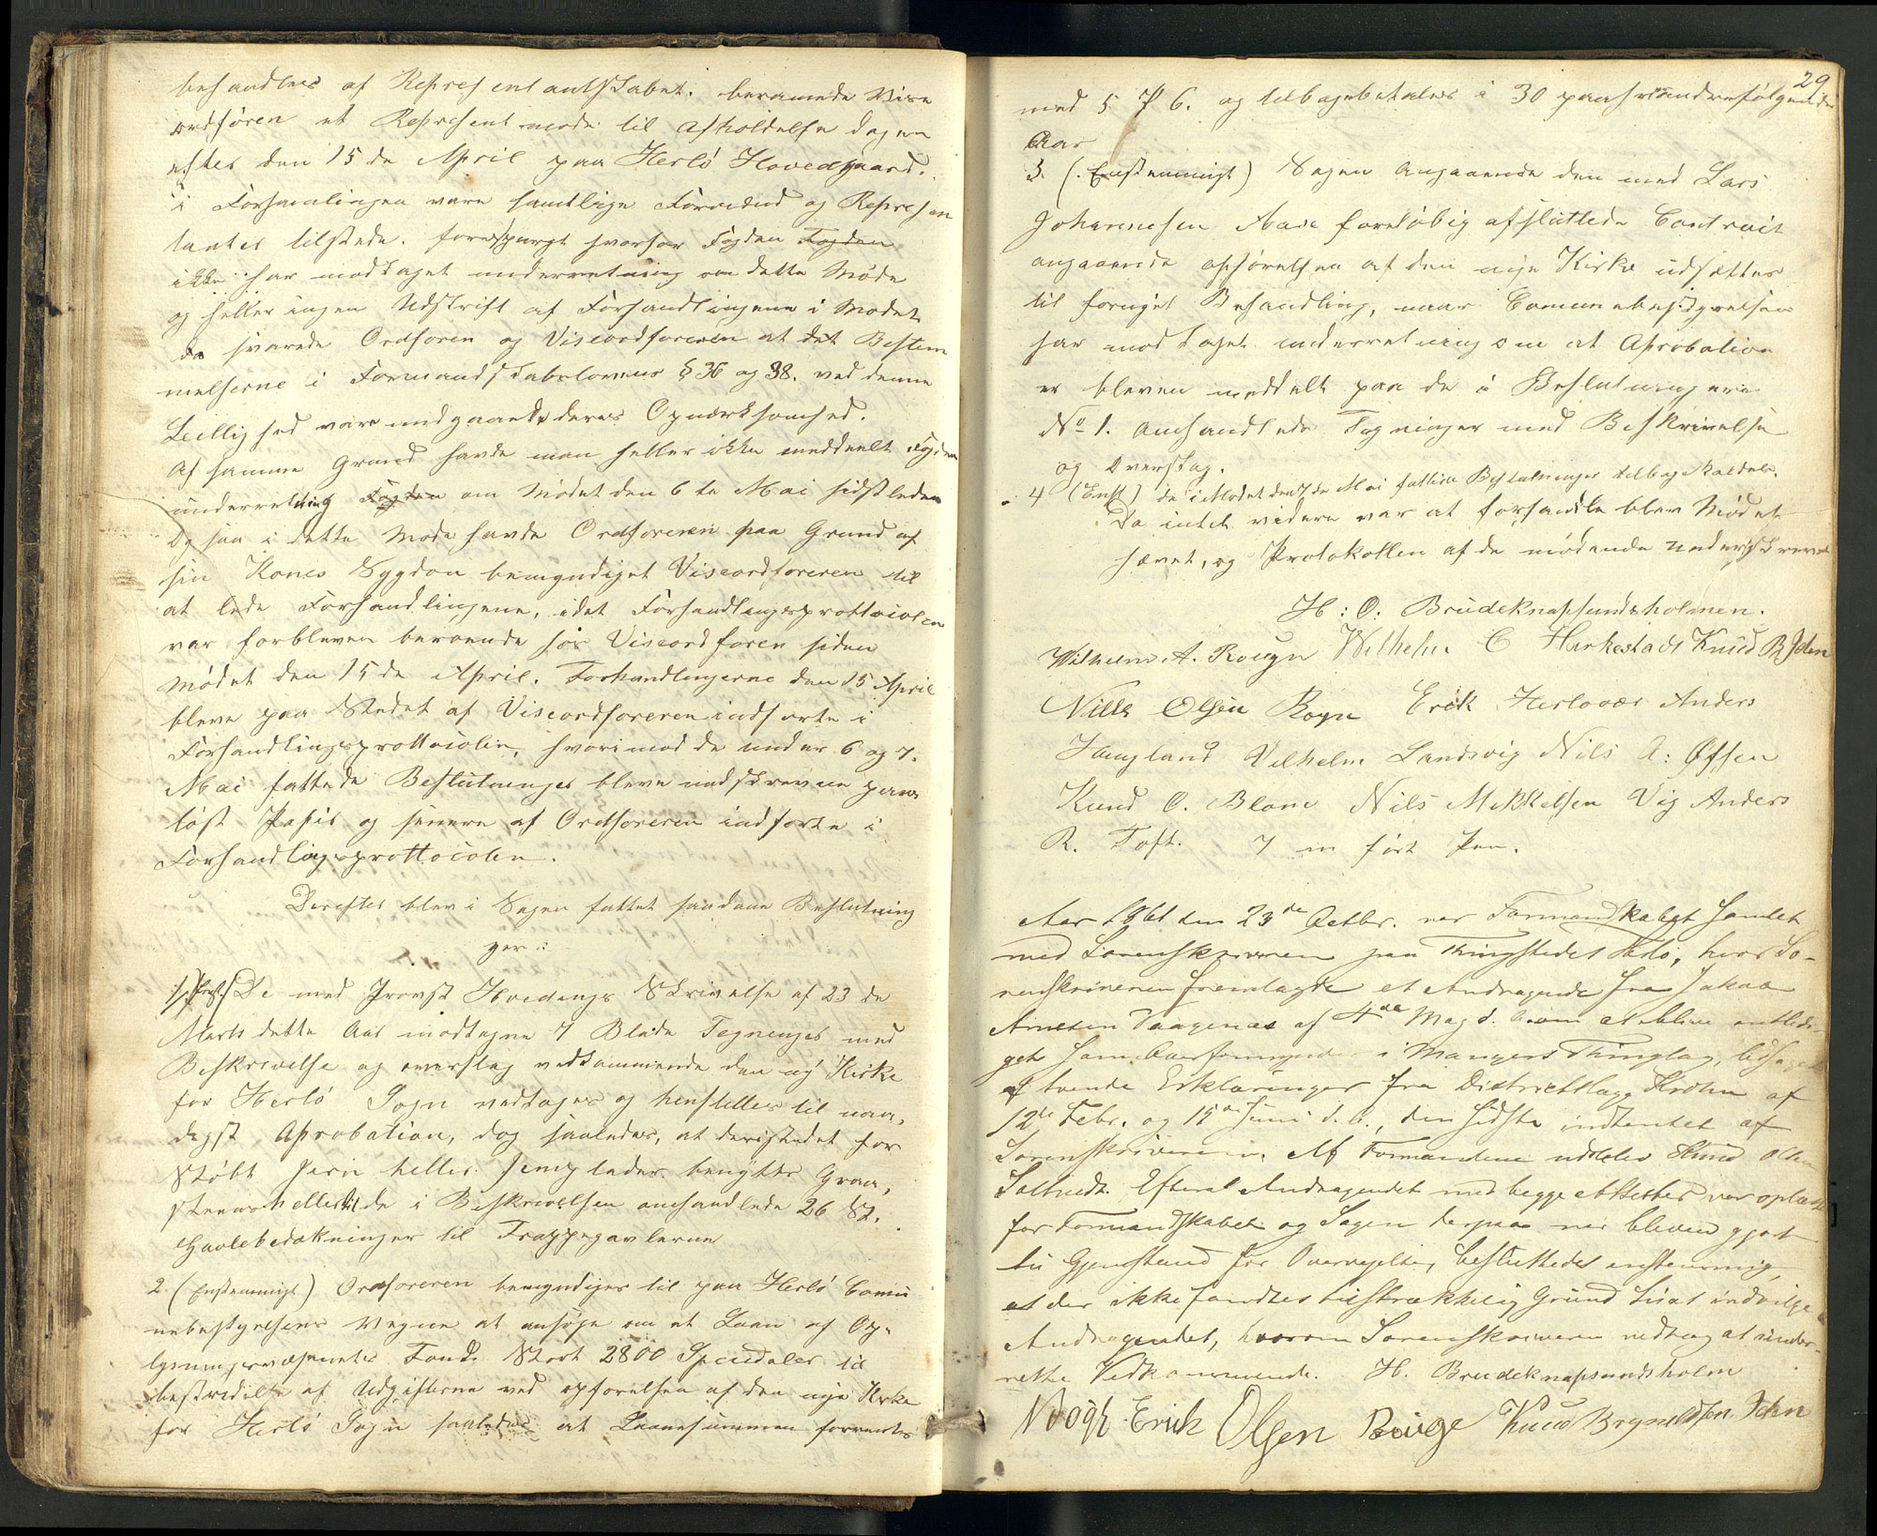 behandles af Representantskabet. beramede Vise
ordføren et Represent møde til Afholdelse dagen
efter den 15de April paa Herlø Hovedgaard.
i Forsamlingen vare samtlige Formænd og Represen
tanter tilstede. forespurgt hvorfor Fogden Fogden
ikke har modtaget underretning om dette Møde
og heller ingen Udskrift af Forhandlingene i Mødet
da svarede Ordføren og Viseordføreren at det Bestem
melserne i Formandskabslovens § 36 og 38. ved denne
Leilighed vare undgaaede deres Opmærksomhed.
Af samme Grund havde man heller ikke meddeelt Fogden
underretning Fogden om Mødet den 6te Mai sidstleden
Og saa i dette Møde havde Ordføreren paa Grund af
sin Kones Sygdom bemyndiget Viseordføreren til
at lede Forhandlingene, idet Forhandlingsprottocolen
var forbleven beroende hos Viseordføren siden
Mødet den 15de April. Forhandlingerne den 15 April
bleve paa Stedet af Viseordføreren indførte i
Forhandlingsprottocolen, hvorimod de under 6 og 7.
Mai fattede Beslutninger bleve nedskrevne paa
løst Papir og senere af Ordføreren indførte i
Forhandlingsprottocolen.
Derefter blev i Sagen fattet saadane Beslutning
ger:
1/ De med Provst Hvedings Skrivelse af 23de
Marts dette Aar modtagne 7 Blade Tegninger med
Beskrivelse og overslag vedkommende den ny Kirke
for Herlø Sogn vedtages og henstilles til naa,
digst Aprobation, dog saaledes, at deristedet for
Støbt Jern heller benyttes Graa,
steens heller til de i Beskrivelsen omhandlede 26 St.
Gavlebedækninger til Trappegavlerne
2 (Enstemmigt) Ordføreren bemyndiges til paa Herlø Comu
nebestyrelsens Vegne at ansøge om et Laan af Op,
lysningsvæsenets Fond Stort 2800 Speciedaler til
bestridelse af Udgifterne ved opførelsen af den nye Kirke
for Herlø Sogn saaledes at Laanesummen forrentes
29
med 5 P C. og tilbagebetales i 30 paahverandrefølgende
Aar
3. (Enstemmigt) Sagen angaaende den med Lars
Johannesen Aase foreløbig afsluttede Contract
angaaende opførelsen af den nye Kirke udsættes
til fornyet Behandling, naar Comunebestyrelsen
har modtaget underretning om at Aprobation
er bleven meddelt paa de i Beslutningerne
No 1. omhandlede Tegninger med Beskrivelse
og Overslag.
4 (Enst) de i Mødet den 7de Mai fattede Beslutninger tilbagekaldes.
Da intet videre var at forhandle blev Mødet
hævet, og Protokollen af de mødende underskreven
H: O. Brudeknapsundsholmen.
Wilhelm A. Rougn Wilhelm C Hankestad Knud B Jelen
Nills Olsen Rogn Erik Herlovær Anders
Haugland Vilhelm Landsvig Nils A: Øssen
Knud O. Blom Nils Mikkelsen Vig Anders
R. Toft. 7 m ført Pen.
Aar 1861 den 23de Octbr. var Formandskabet samlet
med Sorenskriveren paa Thingstedet Herlø, hvor So-
renskriveren fremlagde et Andragende fra Jakob
Arnesen Vaagenæs af 4de Mag d. A. om at blive entledi-
get som Overformynder i Mangers Thinglag, ledsaget
af tvende Erklæringer fra Districtslæge Krohn af
12te Febr. og 15de Juni d. A., den sidste indhentet af
Sorenskriveren. Af Formændene udeblev Knud Olsen
Saltvedt. Efterat Andragendet med begge Attester var oplæst
for Formandskabet og Sagen derpaa var bleven gjort
til Gjenstand for Overveielse, besluttedes enstemmig,
at der ikke fandtes tilstrækkelig Grund til at indvilge
Andragendet, hvorom Sorenskriveren vedtog at under-
rette Vedkommende. H. Brudeknapsundsholm
N Vogt Erik Olsen Røige Knud Brynildsen Jelen